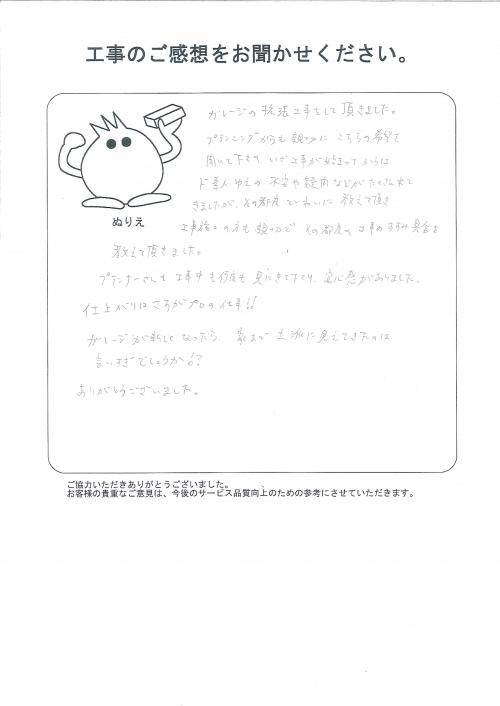 工事のご感想をお聞かせください。
ガレージの拡張工事をして頂きました。
プランニングからも親切に こちらの希望を
聞いて下さり、いざ工事が始まってからは
ド素人ゆえの不安や疑問などがたくさん出て
きましたが、その都度ていねいに教えて頂き
工事施工の方も親切で その都度の工事のすすみ具合を
教えて頂きました。
プランナーさんも工事中も何度も見にきて下さり、安心感がありました。
仕上がりはさすがプロの仕事!!
ガレージが新しくなったら、家まで立派に見えてきたのは
言いすぎでしょうか!?
ありがとうございました。
ぬりえ
ご協力いただきありがとうございました。
お客様の貴重なご意見は、今後のサービス品質向上のための参考にさせていただきます。